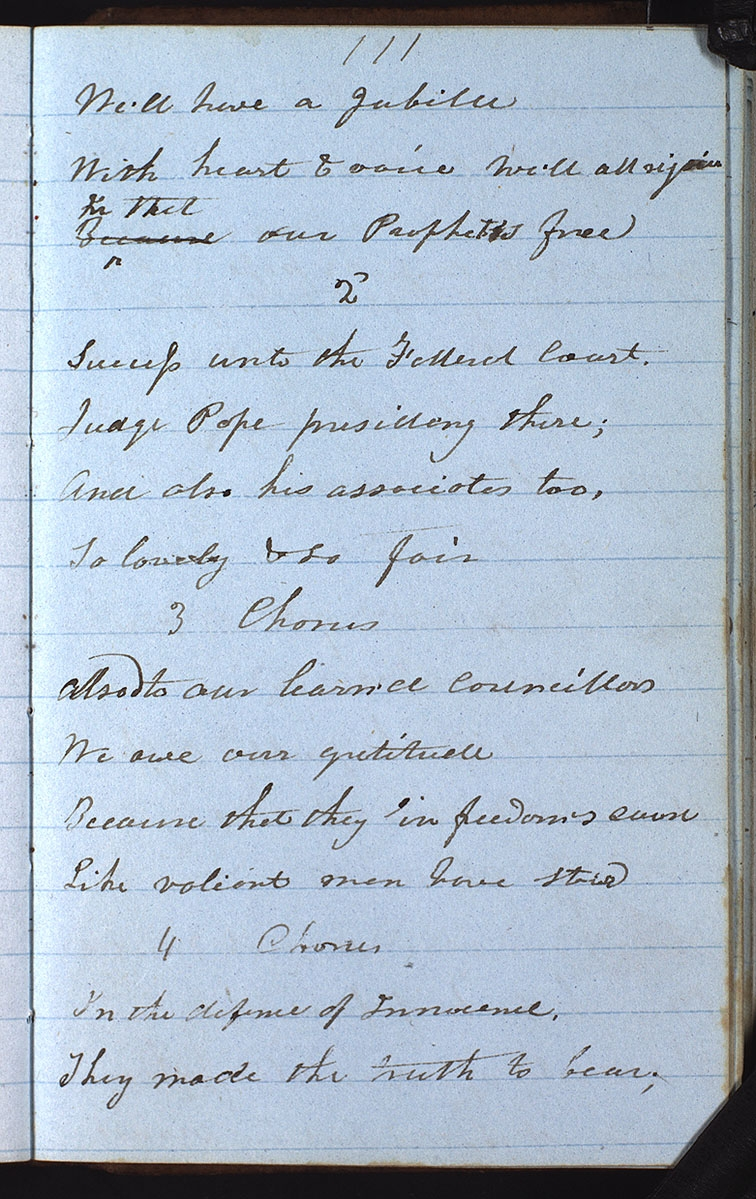 111
We'll have a Jubilee
With heart & voice we'll all rejoice
In that
Because our Prophet's free
2
Success unto the Federel Court.
Judge Pope presiding there;
And also his associates too,
So lovely & so fair
3 Chorus
Also to our learned Councillors
We owe our gratitude
Because that they in freedoms cause
Like valiant men have stood
4 Chorus
In the defence of Innocence,
They made the truth to bear;